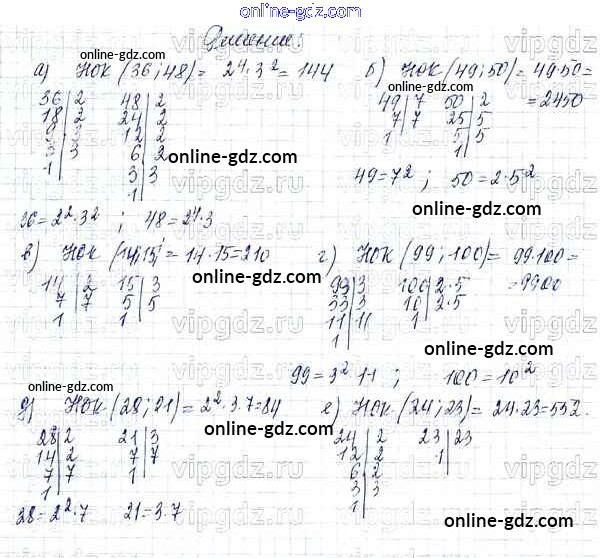 online-gdz.com
Решение:
а) НОК (36; 48) = 2⁴·3² = 144
б) НОК (49; 50) = 49·50 =
= 2450
36 | 2   48 | 2
18 | 2   24 | 2
9 | 3   12 | 2
3 | 3   6 | 2
1 |   3 | 3
1 |
49 | 7   50 | 2
7 | 7   25 | 5
1 |   5 | 5
1 |
49 = 7² ; 50 = 2·5²
36 = 2²·3² ; 48 = 2⁴·3
в) НОК (14; 15) = 14·15 = 210
г) НОК (99; 100) = 99·100 =
= 9900
14 | 2   15 | 3
7 | 7   5 | 5
1 |   1 |
99 | 3   100 | 2·5
33 | 3   10 | 2·5
11 | 11   1 |
1 |
99 = 3²·11 ; 100 = 10²
д) НОК (28; 21) = 2²·3·7 = 84
е) НОК (24; 23) = 24·23 = 552.
28 | 2   21 | 3
14 | 2   7 | 7
7 | 7   1 |
1 |
24 | 2   23 | 23
12 | 2   1 |
6 | 2
3 | 3
1 |
28 = 2²·7   21 = 3·7
online-gdz.com
online-gdz.com
online-gdz.com
online-gdz.com
online-gdz.com
online-gdz.com
online-gdz.com
online-gdz.com
online-gdz.com
online-gdz.com
online-gdz.com
vipgdz.ru
vipgdz.ru
vipgdz.ru